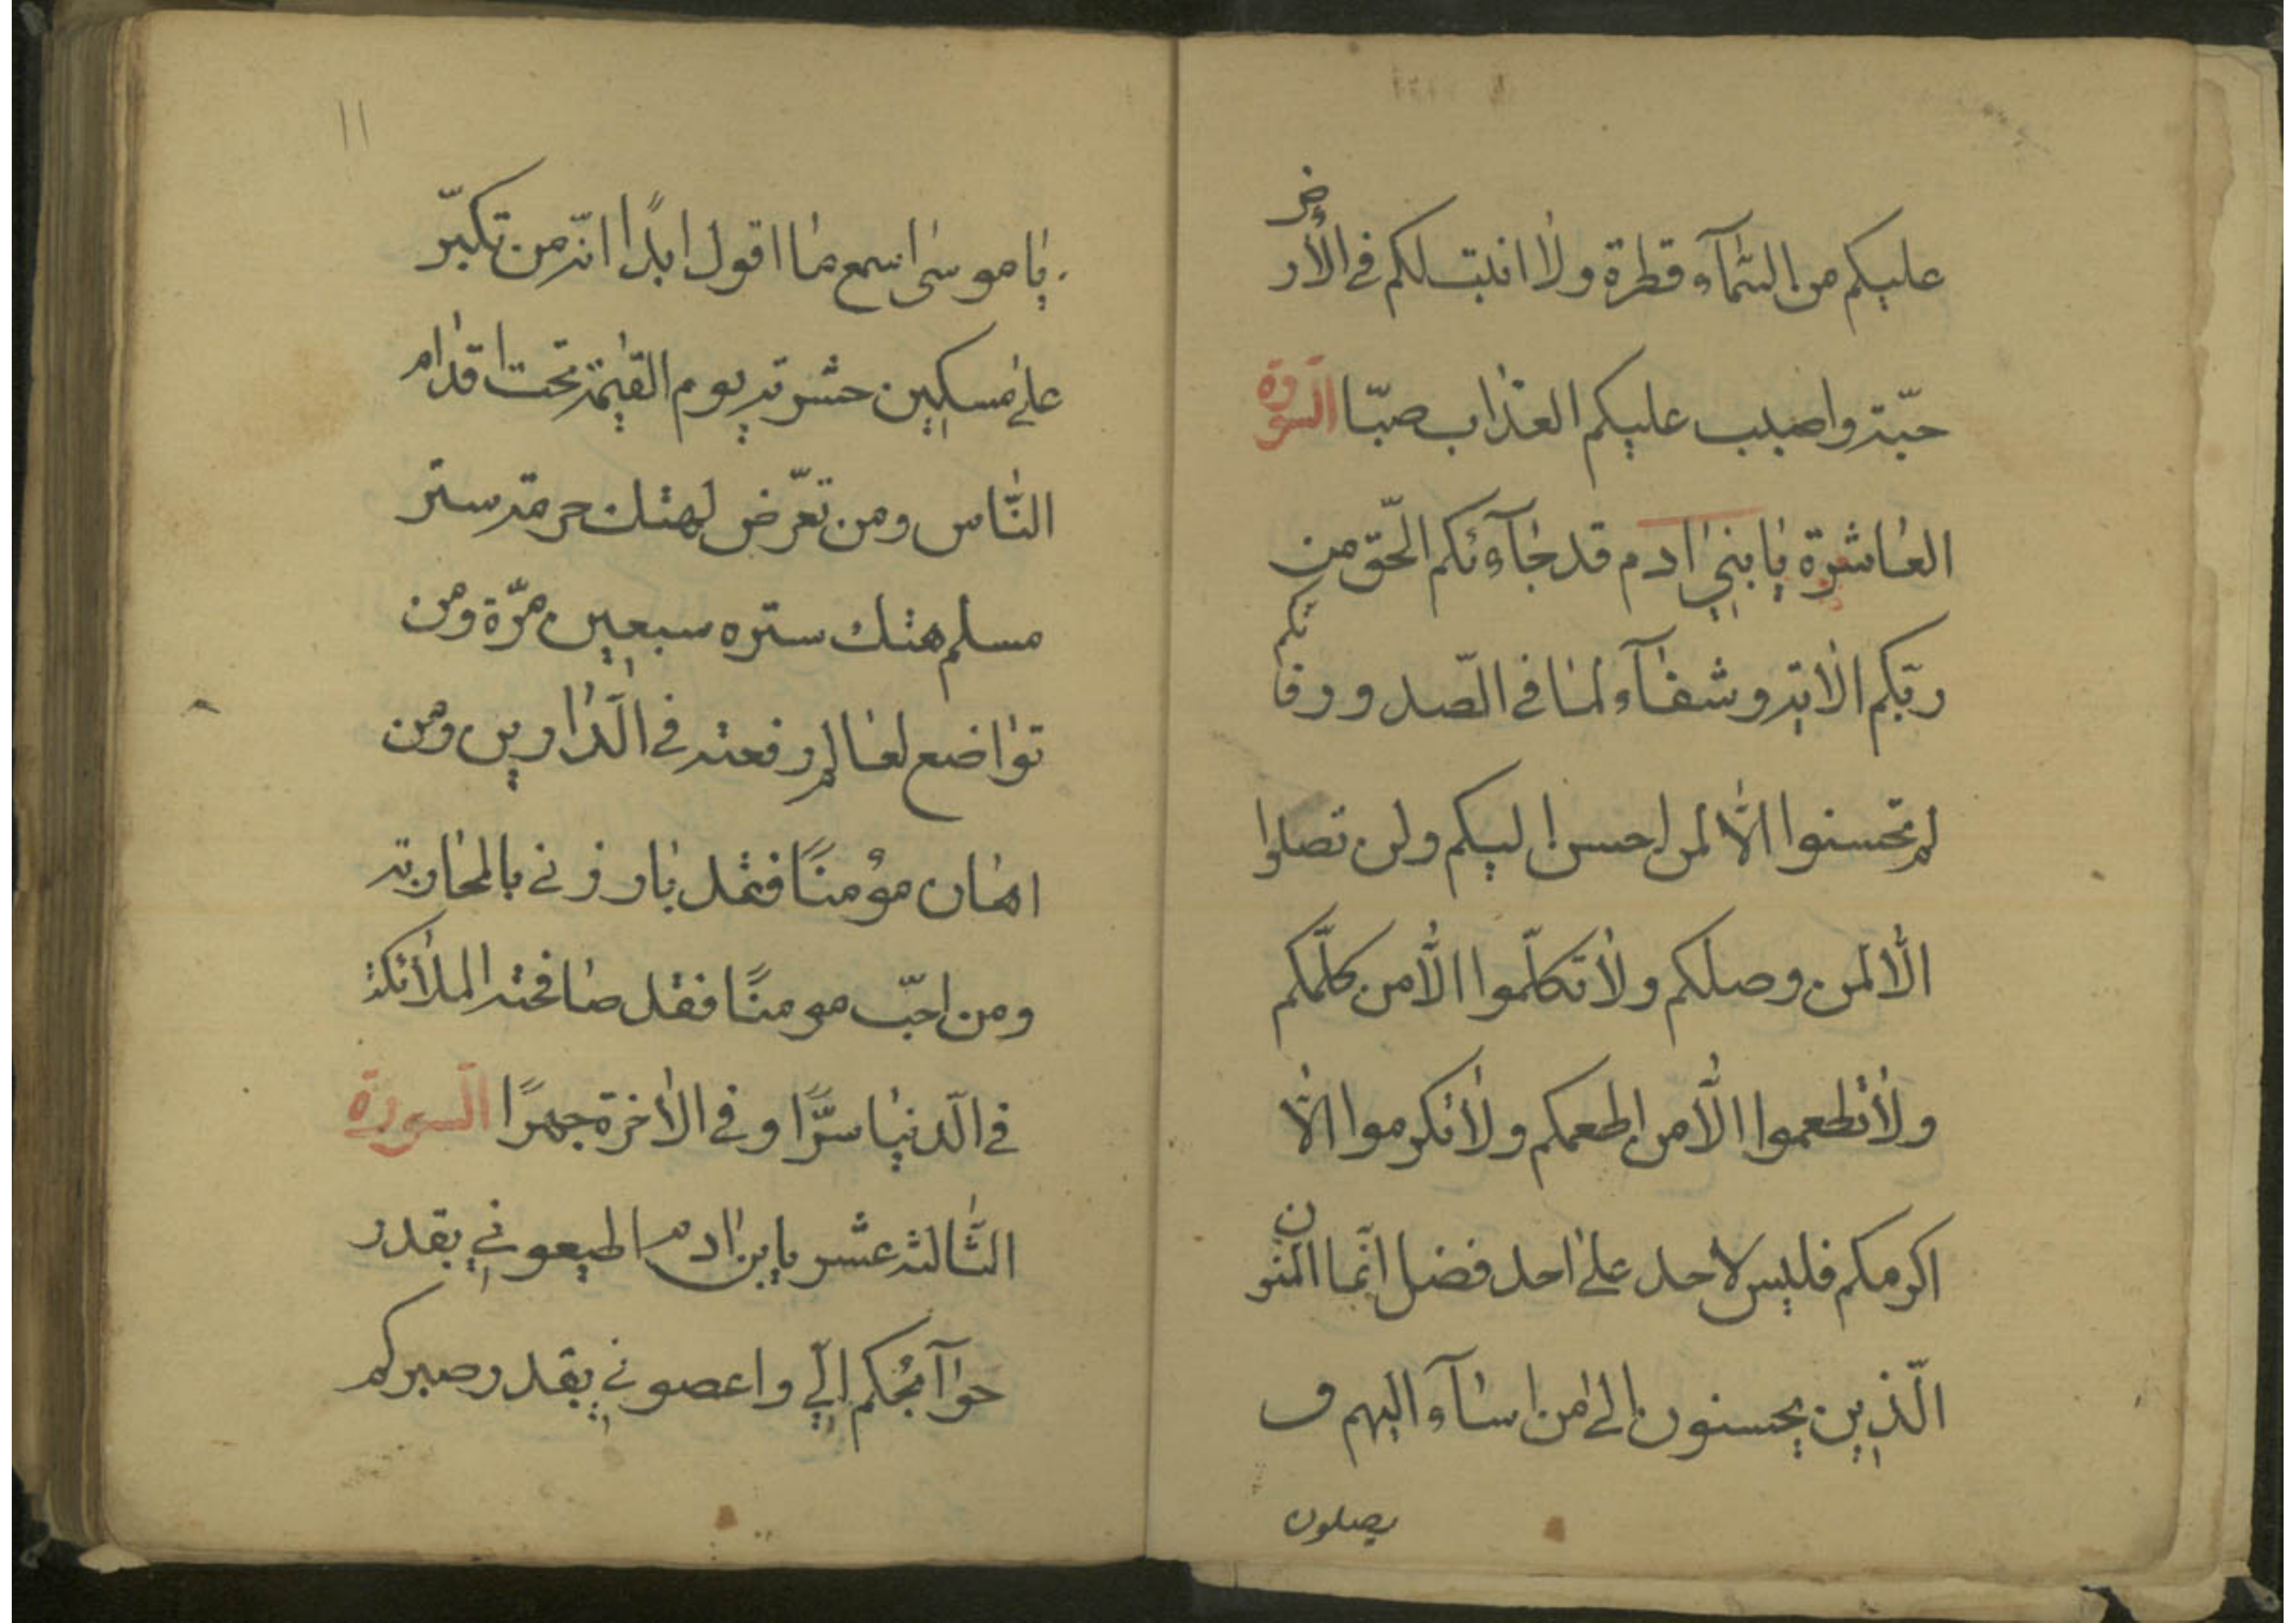 عليكم من السّمآء قطرة ولا انبتـلكم فى الأرض
حبّة واصبب عليكم العذاب صبّا السّورة
العاشرة يا بنى ادم قد جآءكم الحّق من
ربّكم الاية وشفآء لما فى الصّدور فانكم
لم تحسنوا الّا لمن احسن اليكم ولن تصلوا
الّا لمن وصلكم ولا تكلّموا الّا من كلّمكم
ولا تطعموا الّا من اطعمكم ولا تكرموا الّا
اكرمكم فليس لاحد على احد فضل انّما المنون
الّذين يحسنون الى من اسآء اليهم و
يصلون
١١
يا موسى اسمع ما اقول ابدًا انّه من تكبّر
على مسكين حشرته يوم القيمة تحت اقدام
النّاس ومن تعرّض لهتك حرمة ستر
مسلم هتك ستره سبعين مرّة ومن
تواضع لعالم رفعته فى الّدارين ومن
اهان مؤمنًا فقد بارزنى بالمحاربة
ومن احبّ مومنًا فقد صافحته الملائكة
فى الّدنيا سرًّا وفى الاخرة جهرًا السورة
الثّالثة عشر يابن ادم اطيعونى بقدر
حوآئجكم الىّ واعصونى بقدر صبركم